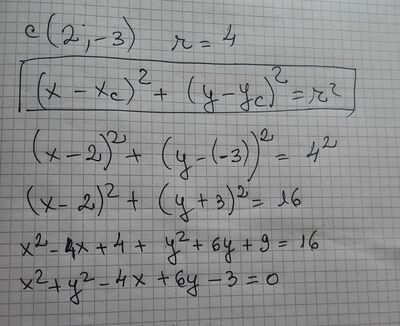 c(2;-3) r = 4
(x - x_c)² + (y - y_c)² = r²
(x - 2)² + (y - (-3))² = 4²
(x - 2)² + (y + 3)² = 16
x² - 4x + 4 + y² + 6y + 9 = 16
x² + y² - 4x + 6y - 3 = 0